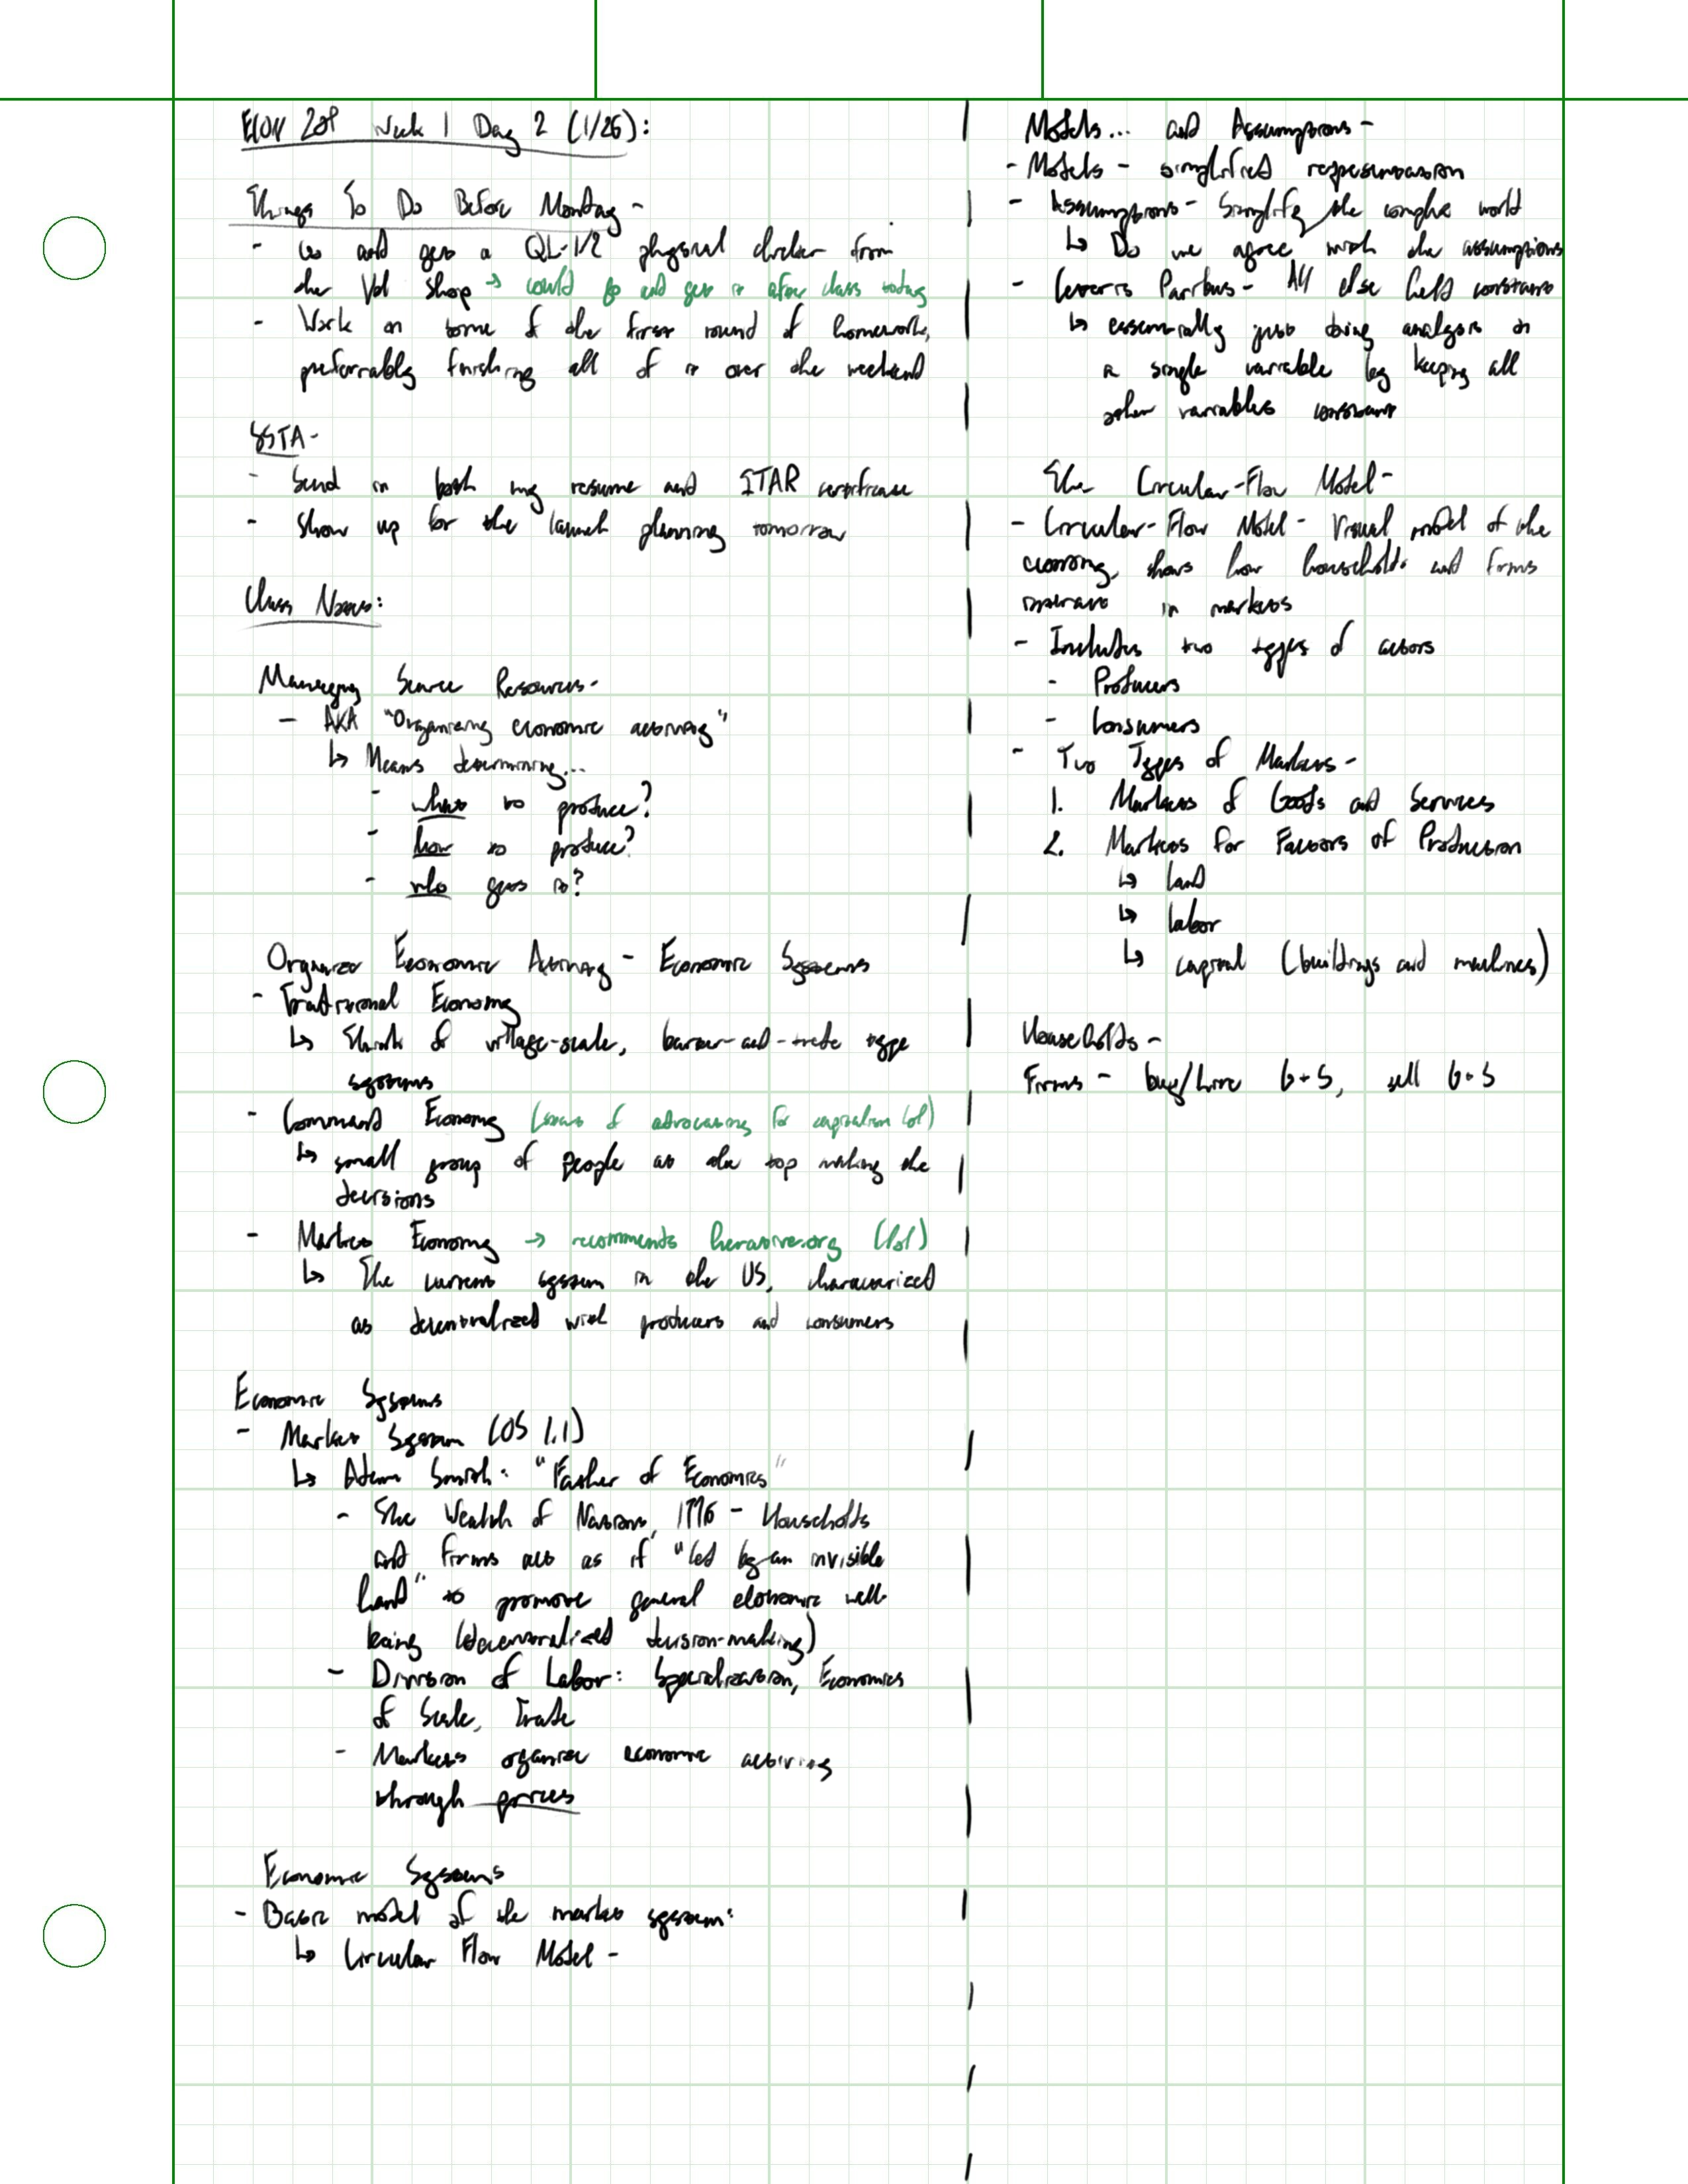 ECON 201 Week 1 Day 2 (1/26):
Things To Do Before Monday -
- Go and get a QL-1/2 physical clicker from
the Vol shop → could go and get it after class today
- Work on some of the first round of homework,
preferrably finishing all of it over the weekend
SSTA -
- Send in both my resume and ITAR certificate
- Show up for the launch planning tomorrow
Class Notes:
Managing Scarce Resources -
- AKA "Organizing economic activity"
↳ Means determining...
- what to produce?
- how to produce?
- who gets it?
Organize Economic Activity - Economic Systems
- Traditional Economy
↳ Think of village-scale, barter-and-trade type
systems
- Command Economy ( of advocating for capitalism lol)
↳ small group of people at the top making the
decisions
- Market Economy → recommends heritage.org (lol)
↳ The current system in the US, characterized
as decentralized with producers and consumers
Economic Systems
- Market System (OS 1.1)
↳ Adam Smith: "Father of Economics"
- The Wealth of Nations, 1776 - Households
and firms act as if "led by an invisible
hand" to promote general economic well-
being (decentralized decision-making)
- Division of Labor: Specialization, Economies
of Scale, Trade
- Markets organize economic activity
through prices
Economic Systems
- Basic model of the market system:
↳ Circular Flow Model -
Models... and Assumptions -
- Models - simplified representation
- Assumptions - Simplify the complex world
↳ Do we agree with the assumptions
- Ceteris Paribus - All else held constant
↳ essentially just doing analysis on
a single variable by keeping all
other variables constant
The Circular-Flow Model -
- Circular-Flow Model - Visual model of the
economy, shows how households and firms
interact in markets
- Includes two types of actors
- Producers
- Consumers
- Two Types of Markets -
1. Markets of Goods and Services
2. Markets for Factors of Production
↳ land
↳ labor
↳ capital (buildings and machines)
Households -
Firms - buy/hire G+S, sell G+S